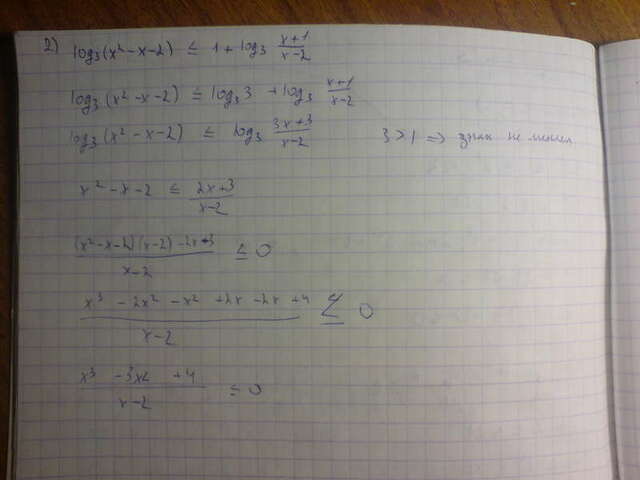 2) log₃(x²-x-2) ≤ 1 + log₃ (x+1)/(x-2)
log₃(x²-x-2) ≤ log₃3 + log₃ (x+1)/(x-2)
log₃(x²-x-2) ≤ log₃ (3x+3)/(x-2) 3>1 => знак не меняем
x²-x-2 ≤ (2x+3)/(x-2)
((x²-x-2)(x-2)-2x+3)/(x-2) ≤ 0
(x³ -2x² -x² +2x -2x +4)/(x-2) ≤ 0
(x³ -3x2 +4)/(x-2) ≤ 0